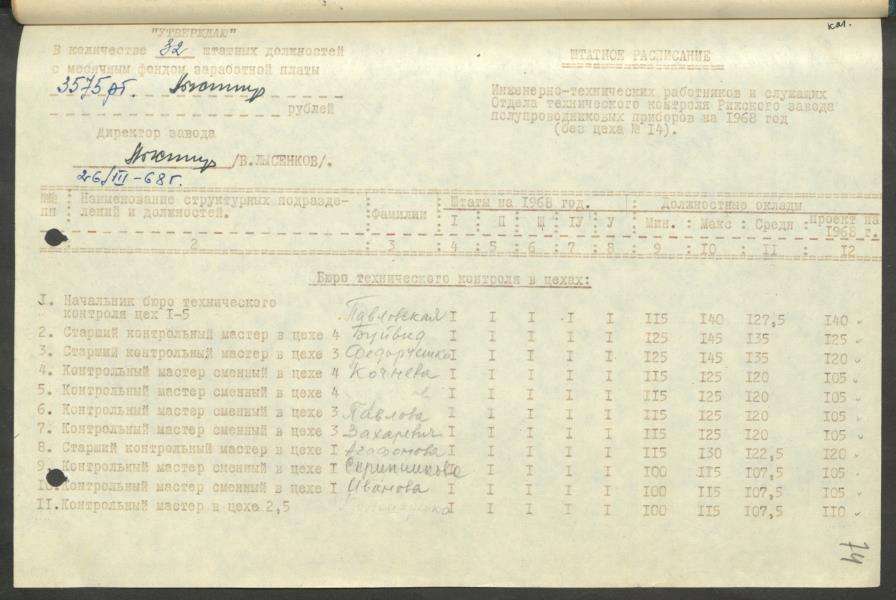 кал.
"УТВЕРЖДАЮ"
В количестве 32 штатных должностей
с месячным фондом заработной платы
3575 рб.
рублей
Директор завода
/В.ЛЫСЕНКОВ/.
26/III-68г.
ШТАТНОЕ РАСПИСАНИЕ
Инженерно-технических работников и служащих
Отдела технического контроля Рижского завода
полупроводниковых приборов на 1968 год
(без цеха № 14).
№№ пп : Наименование структурных подразделений и должностей. : Фамилии : Штаты на 1968 год. : Должностные оклады
I : П : Ш : IУ : У : Мин. : Макс : Средн : проект на 1968 г.
2 : 3 : 4 : 5 : 6 : 7 : 8 : 9 : 10 : 11 : 12
Бюро технического контроля в цехах:
1. Начальник бюро технического
контроля цех I-5 Павловская I I I I I 115 140 127,5 140
2. Старший контрольный мастер в цехе 4 Буйвид I I I I I 125 145 135 125
3. Старший контрольный мастер в цехе 3 Федорченко I I I I I 125 145 135 120
4. Контрольный мастер сменный в цехе 4 Кочнева I I I I I 115 125 120 105
5. Контрольный мастер сменный в цехе 4 I I I I I 115 125 120 105
6. Контрольный мастер сменный в цехе 3 Павлова I I I I I 115 125 120 105
7. Контрольный мастер сменный в цехе 3 Захаревич I I I I I 115 125 120 105
8. Старший контрольный мастер в цехе I Агафонова I I I I I 115 130 122,5 120
9. Контрольный мастер сменный в цехе I Скрипникова I I I I I 100 115 107,5 105
10. Контрольный мастер сменный в цехе I Иванова I I I I I 100 115 107,5 105
11. Контрольный мастер в цехе 2,5 I I I I I 100 115 107,5 110
74